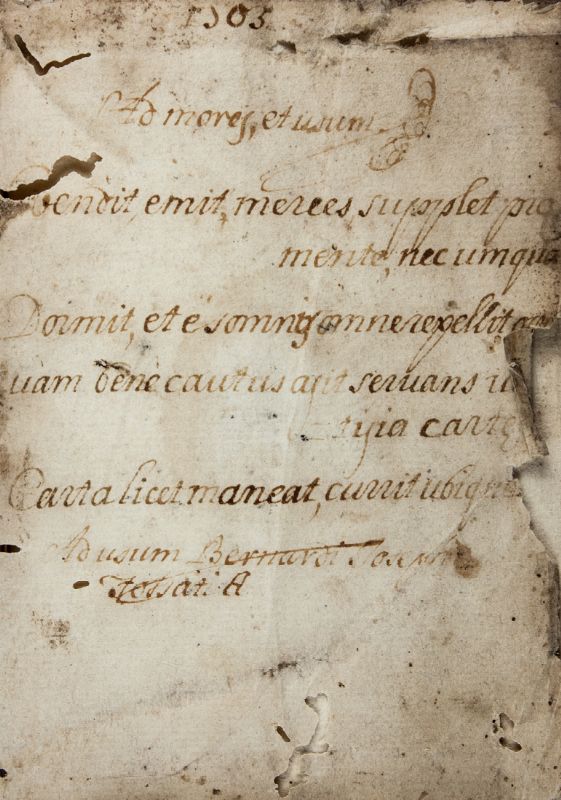 1703
Ad mores, et usum
Vendit, emit, merces, supplet pro
merito, nec umqua
Dormit, et è somnos omne repellit
uam bene cautus agit servans
Carta licet maneat, currit ubique
Ad usum Bernardi Joseph
Fossati A